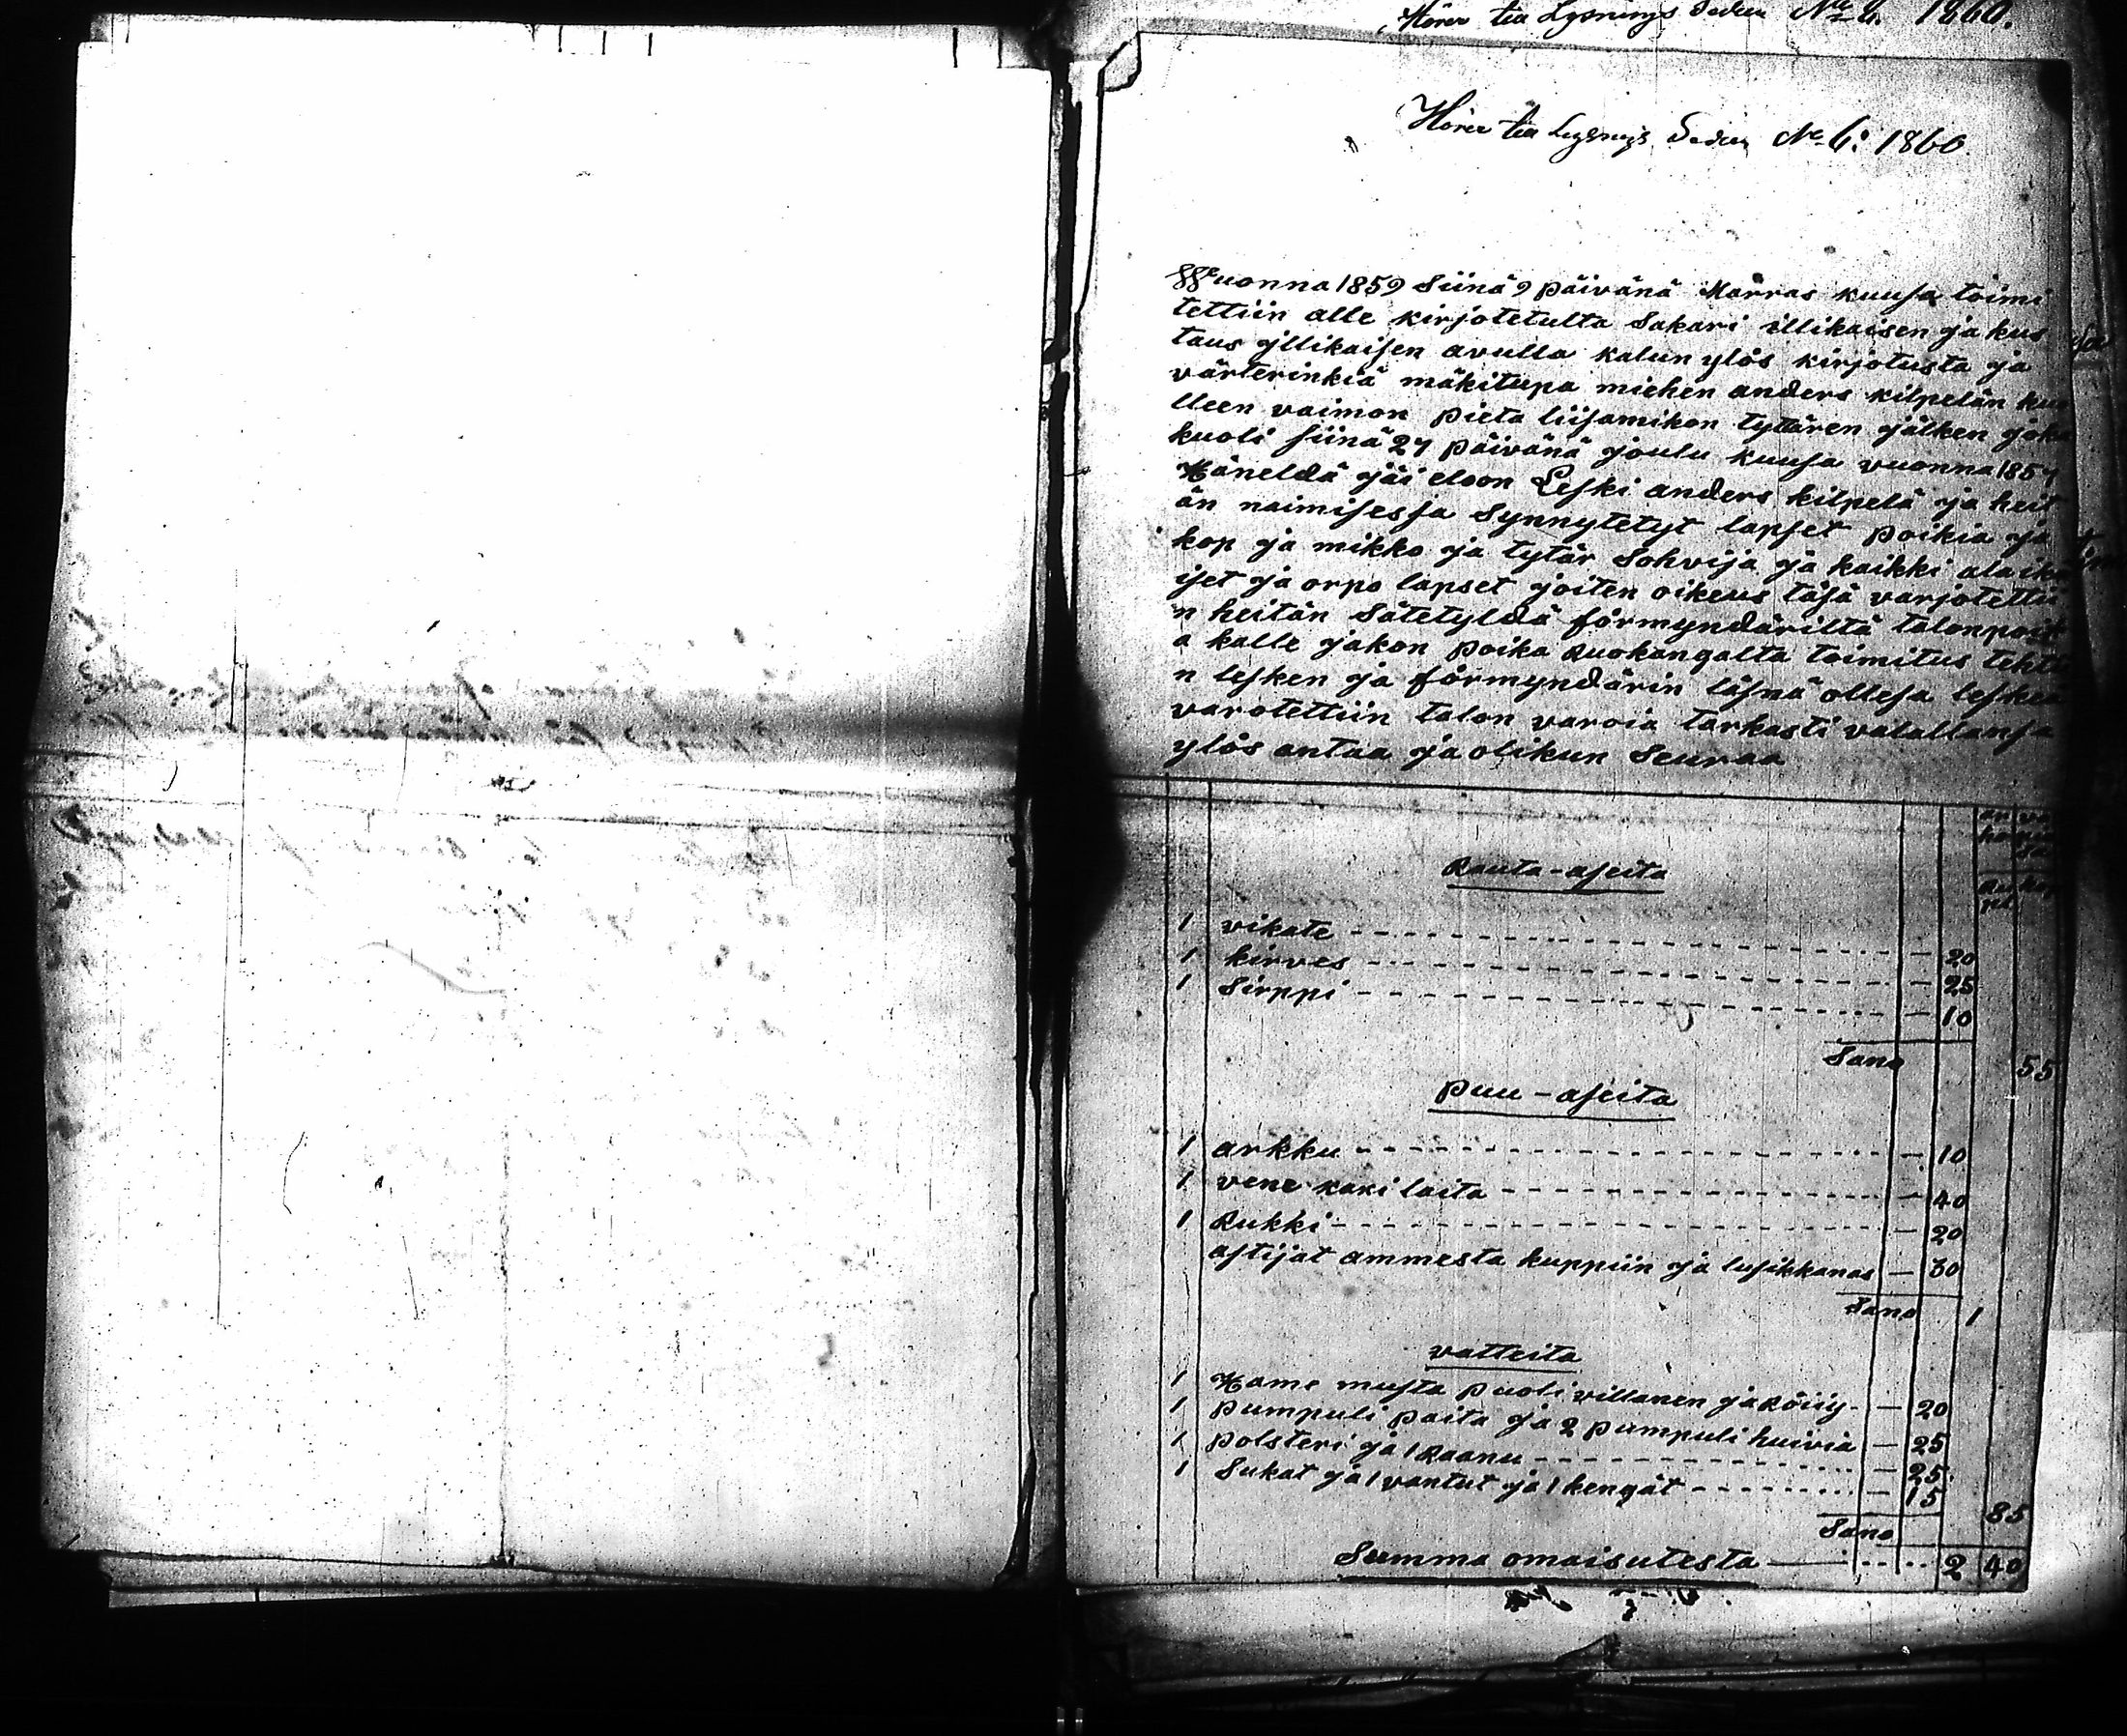 1860.
Hörer till Lysnings Sedeln No 6: 1860.
Wuonna 1859 Siinä 9 päivänä Marras kuusa toimi
tettiin alle kirjotetulta Sakari illikaisen ja kus
taus yllikaisen avulla kalun ylös kirjotusta ja
värterinkiä mäkitupa miehen anders kilpelän kuo
lleen vaimon pieta liisa mikon tyttären jälken joka
kuoli siinä 27 päivänä joulu kuusa vuonna 1857
Häneldä jäi eloon Leski anders kilpelä ja heit
än naimisessa Synnytetyt lapset poikia ja
kop ja mikko ja tytär Sohvija ja kaikki alaikä
iset ja orpo lapset joiten oikeus täsä varjotettii
n heitän Sätetyldä förmyndäriltä talonpoik
a kalle jakon poika Ruokangalta toimitus tehti
n lesken ja förmyndärin läsnä ollesa leskeä
varotettiin talon varoia tarkasti valallansa
ylös antaa ja oli kun Seuraa
Rauta-aseita
1 vikate - 20
1 kirves - 25
1 Sirppi - 10
Sana 55
puu-aseita
1 arkku - 10
1 vene kaxi laita - 40
1 Rukki - 20
astijat ammesta kuppiin ja lusikkanas - 30
Sana 1
vatteita
1 Hame musta puoli villanen ja röijy - 20
1 pumpuli paita ja 2 pumpuli huivia - 25
1 polsteri ja 1 Raanu - 25
1 Sukat ja 1 vantut ja 1 kengät - 15
Sana 85
Summa omaisutesta 2 40